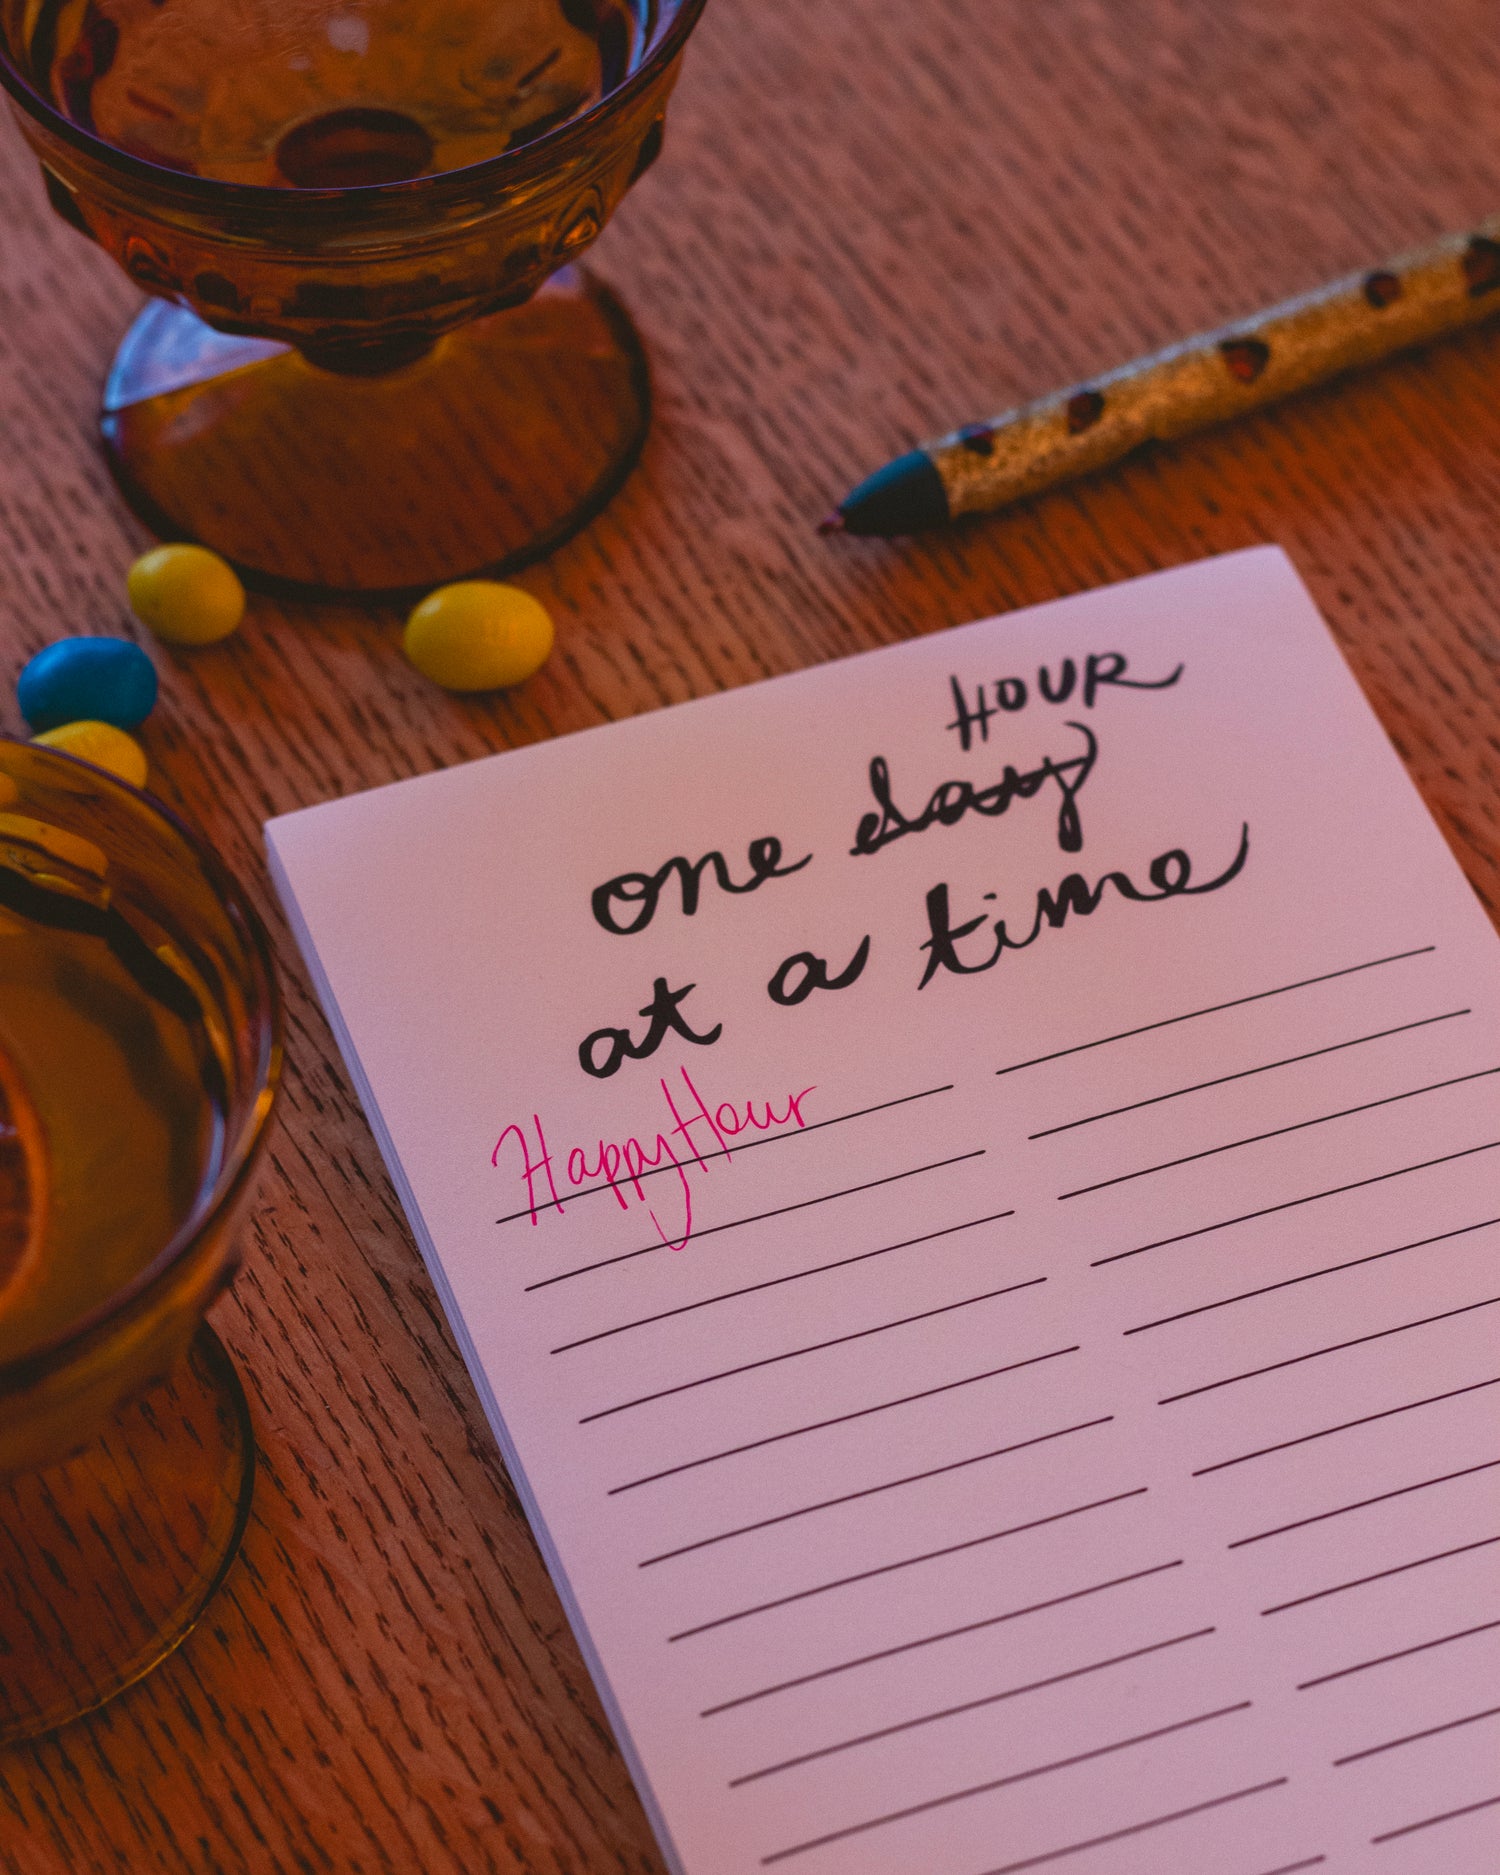 HOUR
one day
at a time
Happy Hour